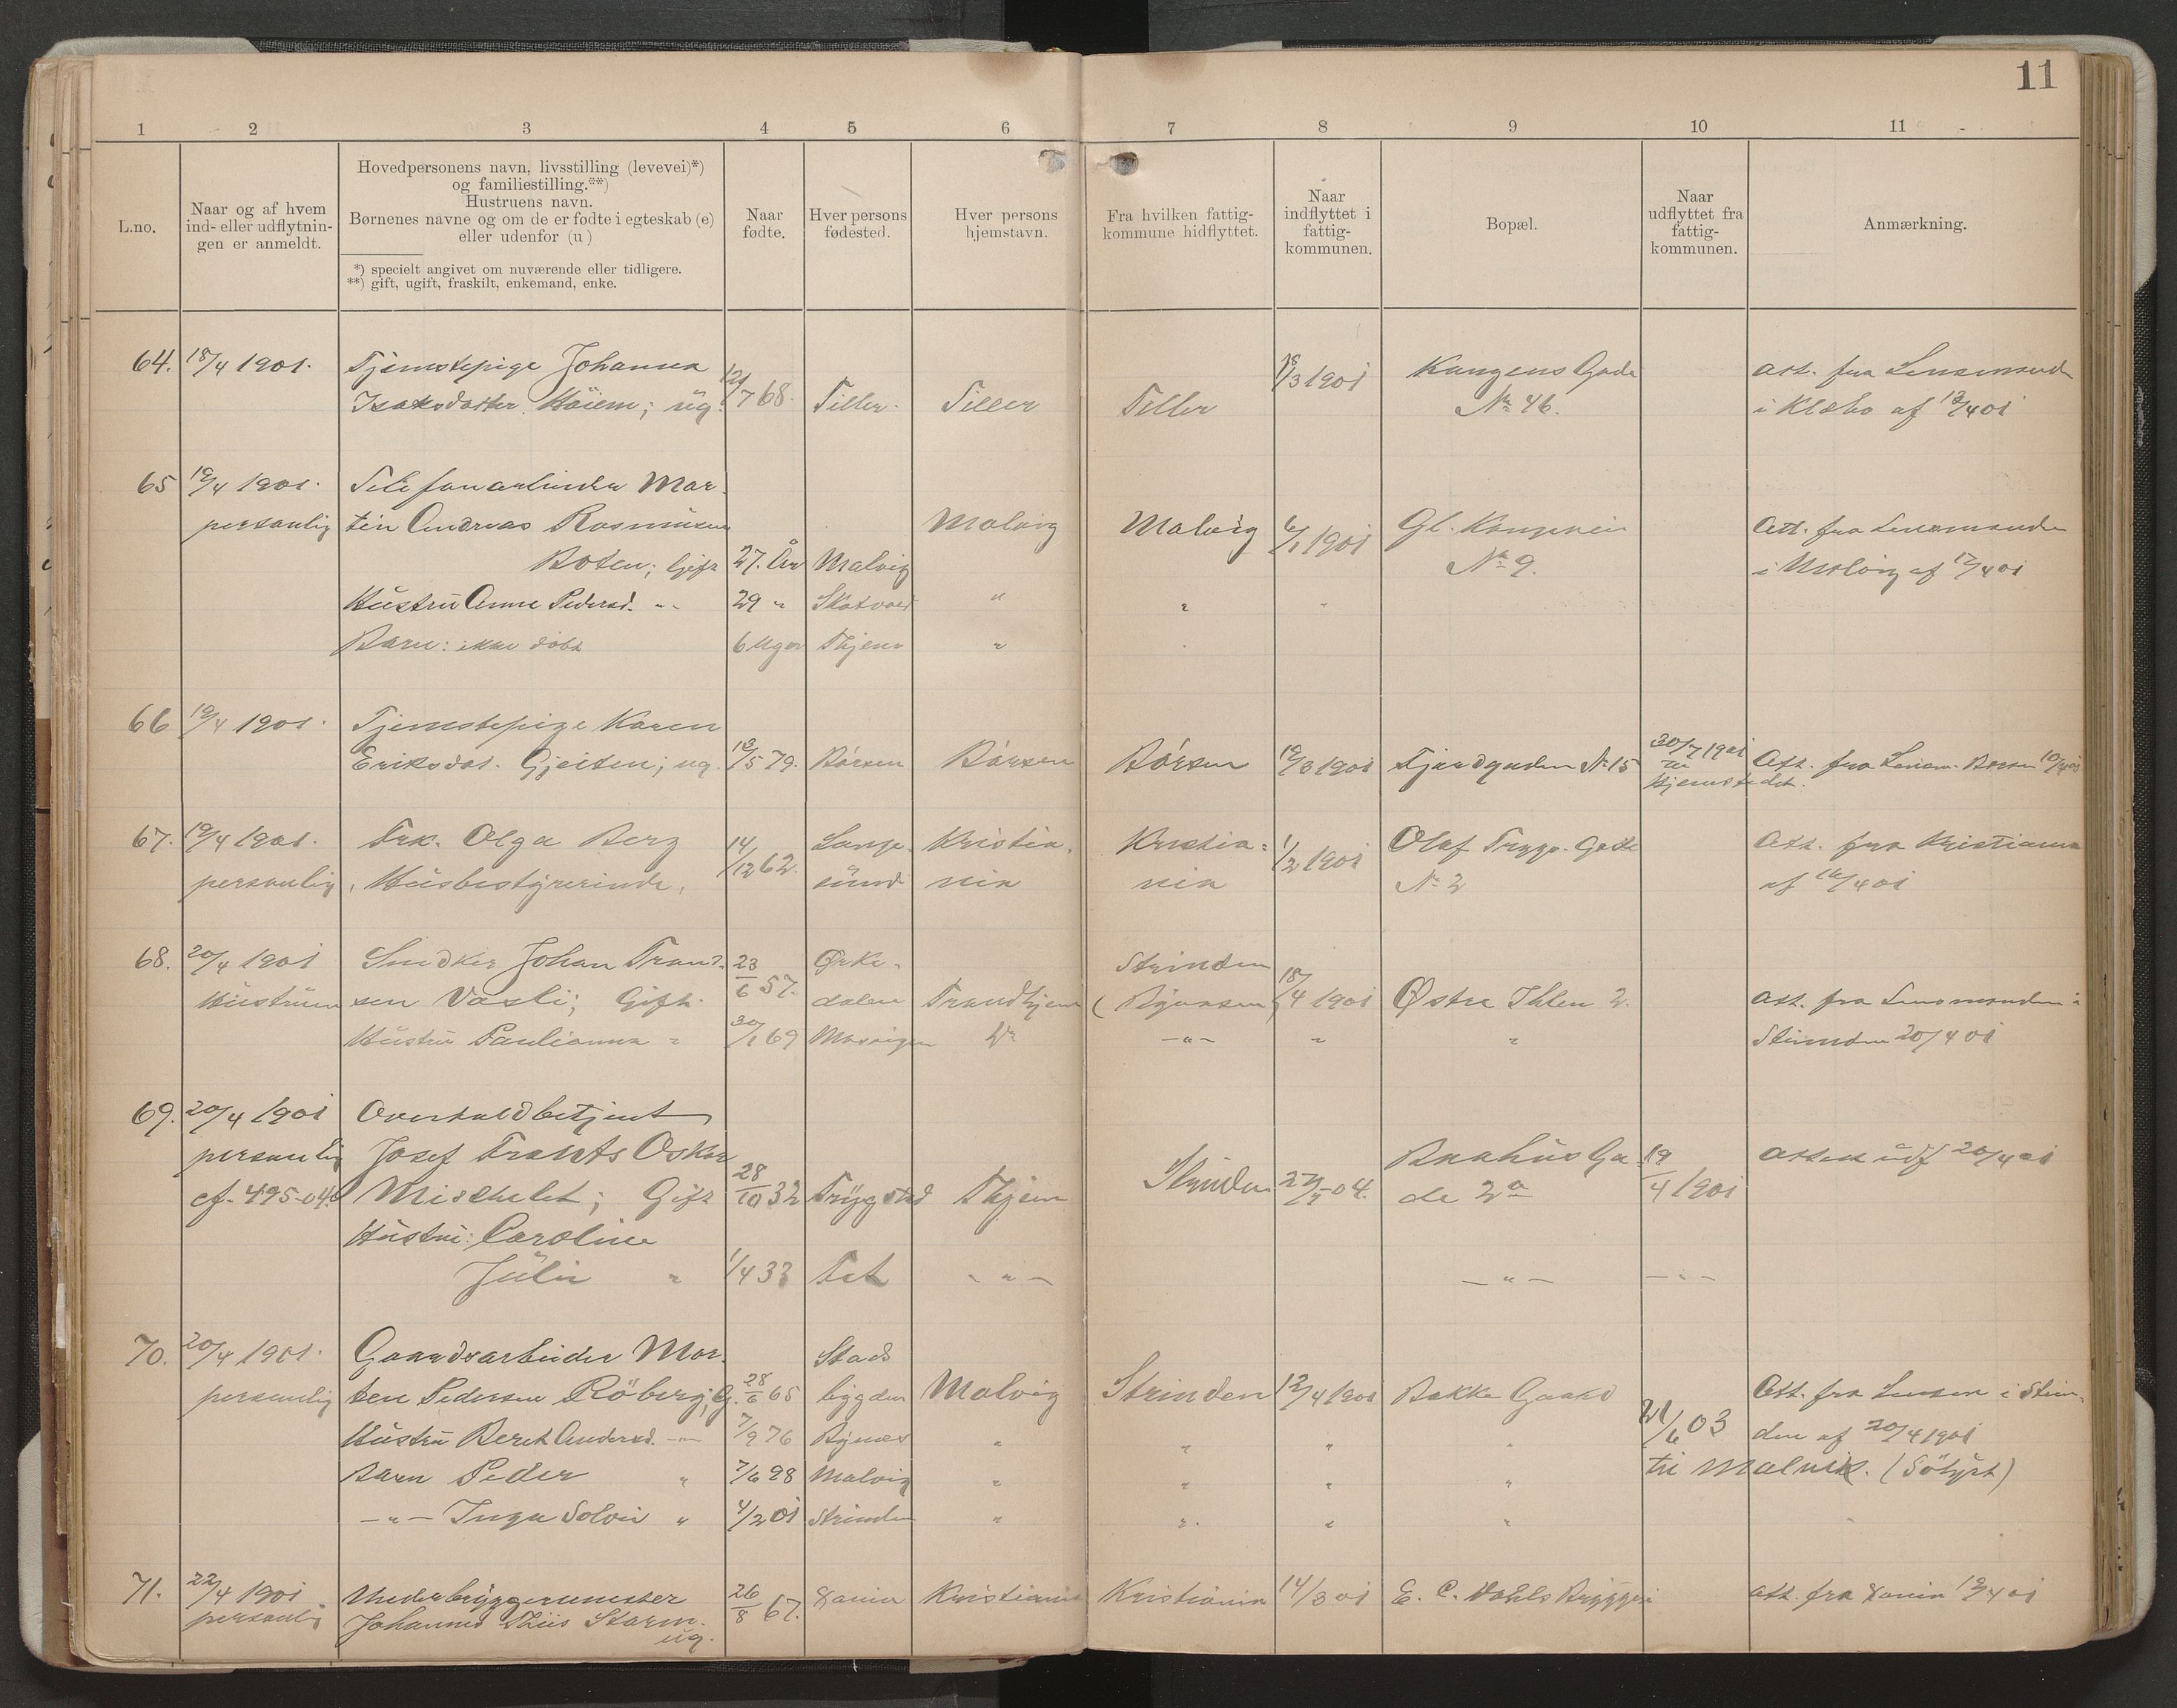 11
1 2 3 4 5 6 7 8 9 10 11
L.no.
Naar og af hvem
ind- eller udflytnin-
gen er anmeldt.
Hovedpersonens navn, livsstilling (levevei)*)
og familiestilling.**)
Hustruens navn.
Børnenes navne og om de er fødte i egteskab (e)
eller udenfor (u)
*) specielt angivet om nuværende eller tidligere.
**) gift, ugift, fraskilt, enkemand, enke.
Naar
fødte.
Hver persons
fødested.
Hver persons
hjemstavn.
Fra hvilken fattig-
kommune hidflyttet.
Naar
indflyttet i
fattig-
kommunen.
Bopæl.
Naar
udflyttet fra
fattig-
kommunen.
Anmærkning.
64. 18/4 1901. Tjenestepige Johanna 18/3 1901 Kongens Gade att. fra Lensmand
Isaksdatter Höiem; ug. /7 68. Tiller Tiller Tiller No 46. i Klæbo af 13/4 01
65 19/4 1901. Telefonarbeider Mar-
personlig tin Andreas Rasmusen Malvig Malvig 6/1 1901 Gl. Kongevei Att. fra Lensmanden
Boten; Gift 27. År Malvig No 9. i Malvig af 17/4 01
Hustru Anne Pedersd. " 29 " Skatval " " "
Barn: ikke döbt 6 Uger Thjem "
66 19/4 1901. Tjenestepige Karen
Eriksdat. Gjeiten; ug. 13/5 79. Börsen Börsen Börsen 19/3 1901 Fjordgaden No 15 30/7 1901 Att. fra Lensm. Börsen 10/4 01
til Hjemstedet.
67. 19/4 1901. Frk. Olga Berg 14/12 62. Lange- Kristia- Kristia- 1/2 1901 Olaf Trygv. Gade Att. fra Kristiania
personlig, Husbestyrerinde, sund nia nia No 2 af 16/4 01
68. 20/4 1901 Snedker Johan Trond- 23/6 57. Orke- Strinden
Hustruen sen Vasli; Gift. dalen Trondhjem (Bynesset) 18/4 1901 Østre Ihlen 2. att. fra Lensmanden i
Hustru Paulianna " 30/1 69 Mosvigen Do -"- " " Strinden 20/4 01
69. 20/4 1901 Overtoldbetjent
personlig Josef Frants Oskar Bakhus Ga- 19/4 1901 attest udf 20/4 01
cf. 495-04. Mischelet; Gift 28/10 32 Trygstad Thjem Strinden 27/7-04. de 2a
Hustru: Caroline
Julie " 1/4 33 Tet - " - - " - - " -
70. 20/4 1901. Gaardsarbeider Mor- Stads
personlig ten Pedersen Röberg; G. 28/6 65 bygden Malvig Strinden 12/4 1901 Bakke Gaard Att. fra Lensm i Strin-
Hustru Beret Andersd. -"- 7/9 76 Bynes " " " " 21/6 03 den af 20/4 1901
Barn Peder " 7/6 98 Malvig " " " " til Malvik. (Sökyst)
-"- Inga Solvei " 4/2 01 Strinden " " " "
71. 22/4 1901 Underbryggermester 26/8 67. Xania Kristiania Kristiania 14/3 01 E. C. Dahls Bryggeri att. fra Xania 19/4 01
personlig Johannes Thiis Storm.
ug.